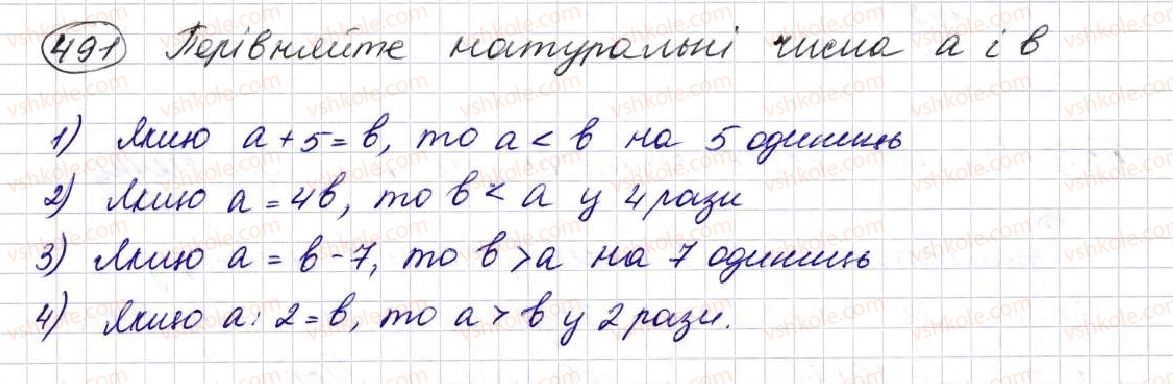 491 Порівняйте натуральні числа a і b
1) Якщо a + 5 = b, то a < b на 5 одиниць
2) Якщо a = 4b, то b < a у 4 рази
3) Якщо a = b - 7, то b > a на 7 одиниць
4) Якщо a : 2 = b, то a > b у 2 рази.